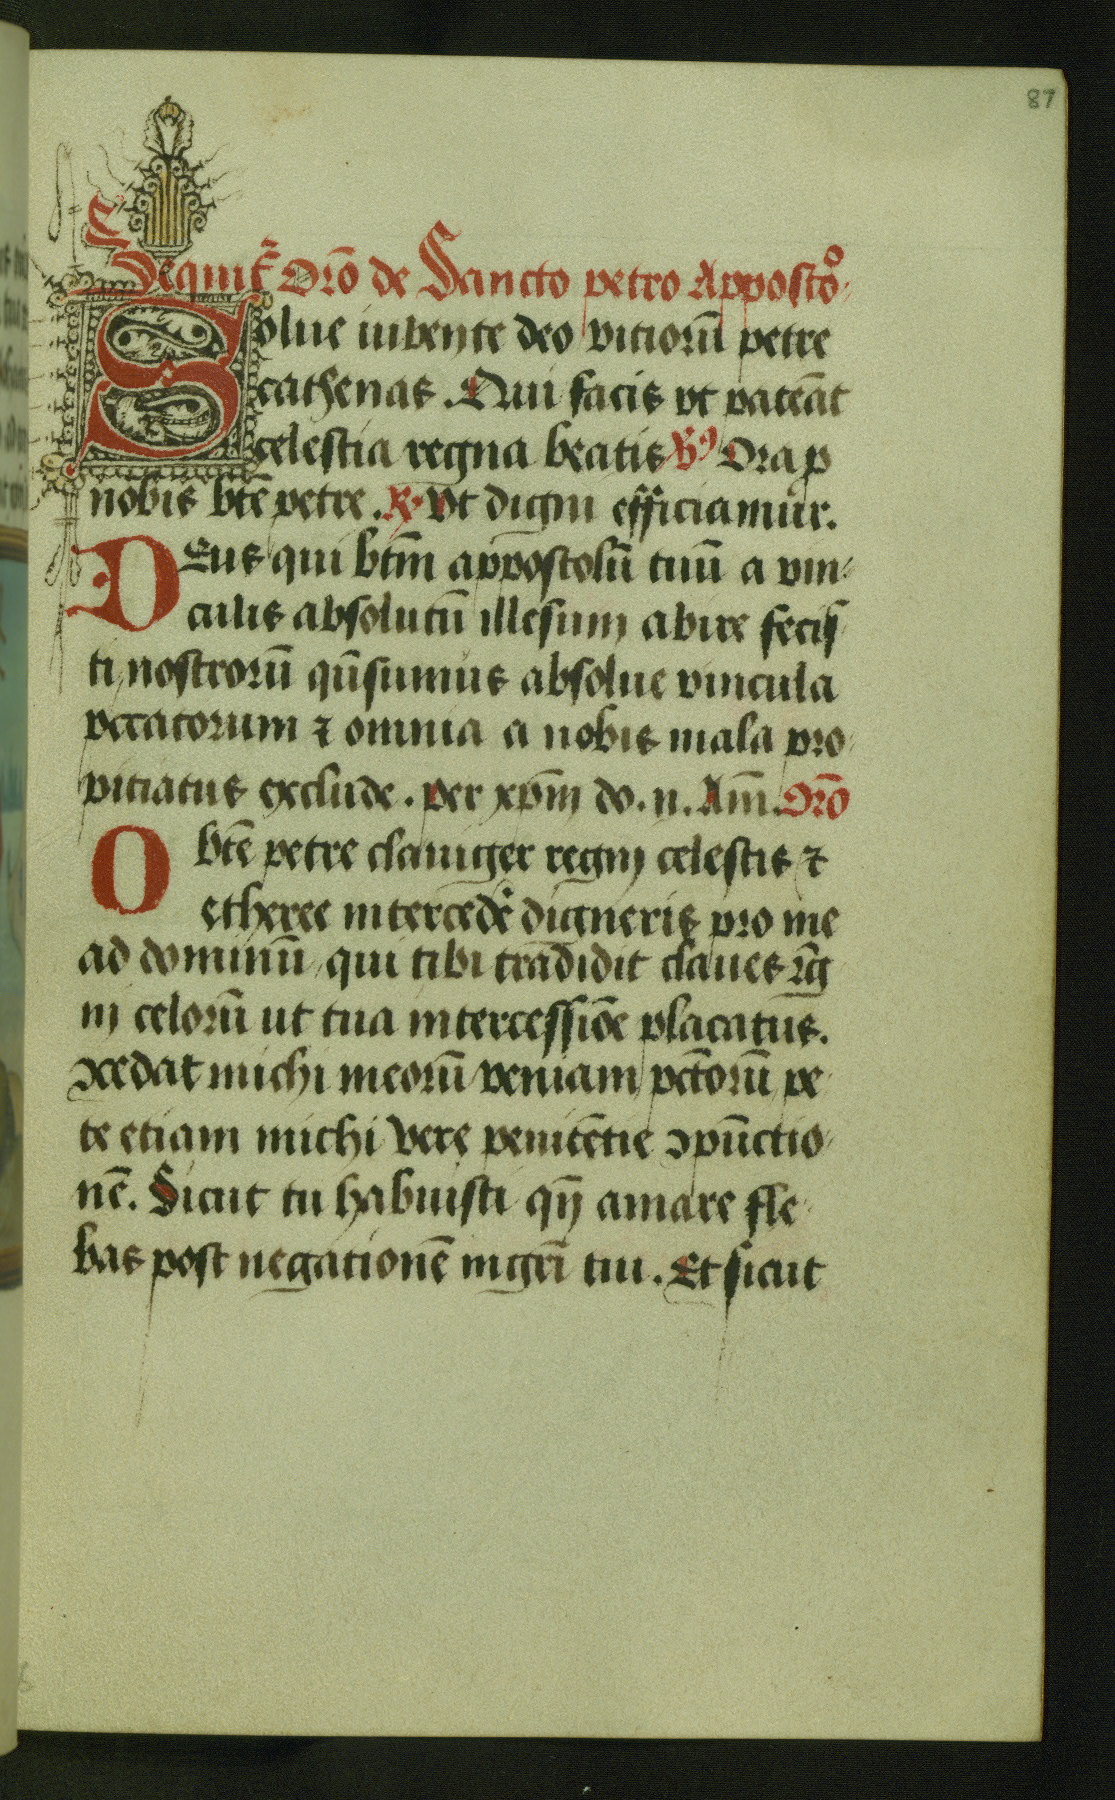 87
Sequit᷑ Orō de Sancto petro Appostoᵒ
Solue iubente deo vitiorū petre
cathenas . Qui facis vt pateāt
celestia regna beatis ℣ꝰ Ora ꝓ
nobis btē petre . ℟. Vt digni efficiamur.
Deus qui btm̄ appostolū tuū a vin-
culis absolutū illesum abire fecis-
ti nostrorū qs̄sumus absolue vincula
peccatorum ⁊ omnia a nobis mala pro-
pitiatus exclude . per xp̄m do . n . Am̄ . Orō
O btē petre clauiger regni celestis ⁊
etheree intercedē digneris pro me
ad dominū qui tibi tradidit claues rēg
ni celorū ut tua intercessiōe placatus.
ꝯcedat michi meorū veniam pctōrū pe-
te etiam michi vere penitētie ꝯpūctio-
nē . Sicut tu habuisti qn̄ amare fle-
bas post negationē mgr̄i tui . Et sicut